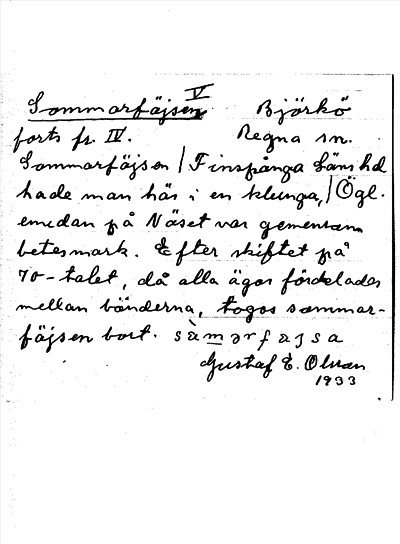 V
Sommarföjsen Björkö
forts fr. IV. Regna sn.
Sommarföjsen | Finspånga läns hd
hade man här i en klunga, | Ögl.
emedan på Näset var gemensam
betesmark. Efter skiftet på
70-talet, då alla ägor fördelades
mellan bönderna, togos sommar-
föjsen bort.
Gustaf E. Olsson
1933